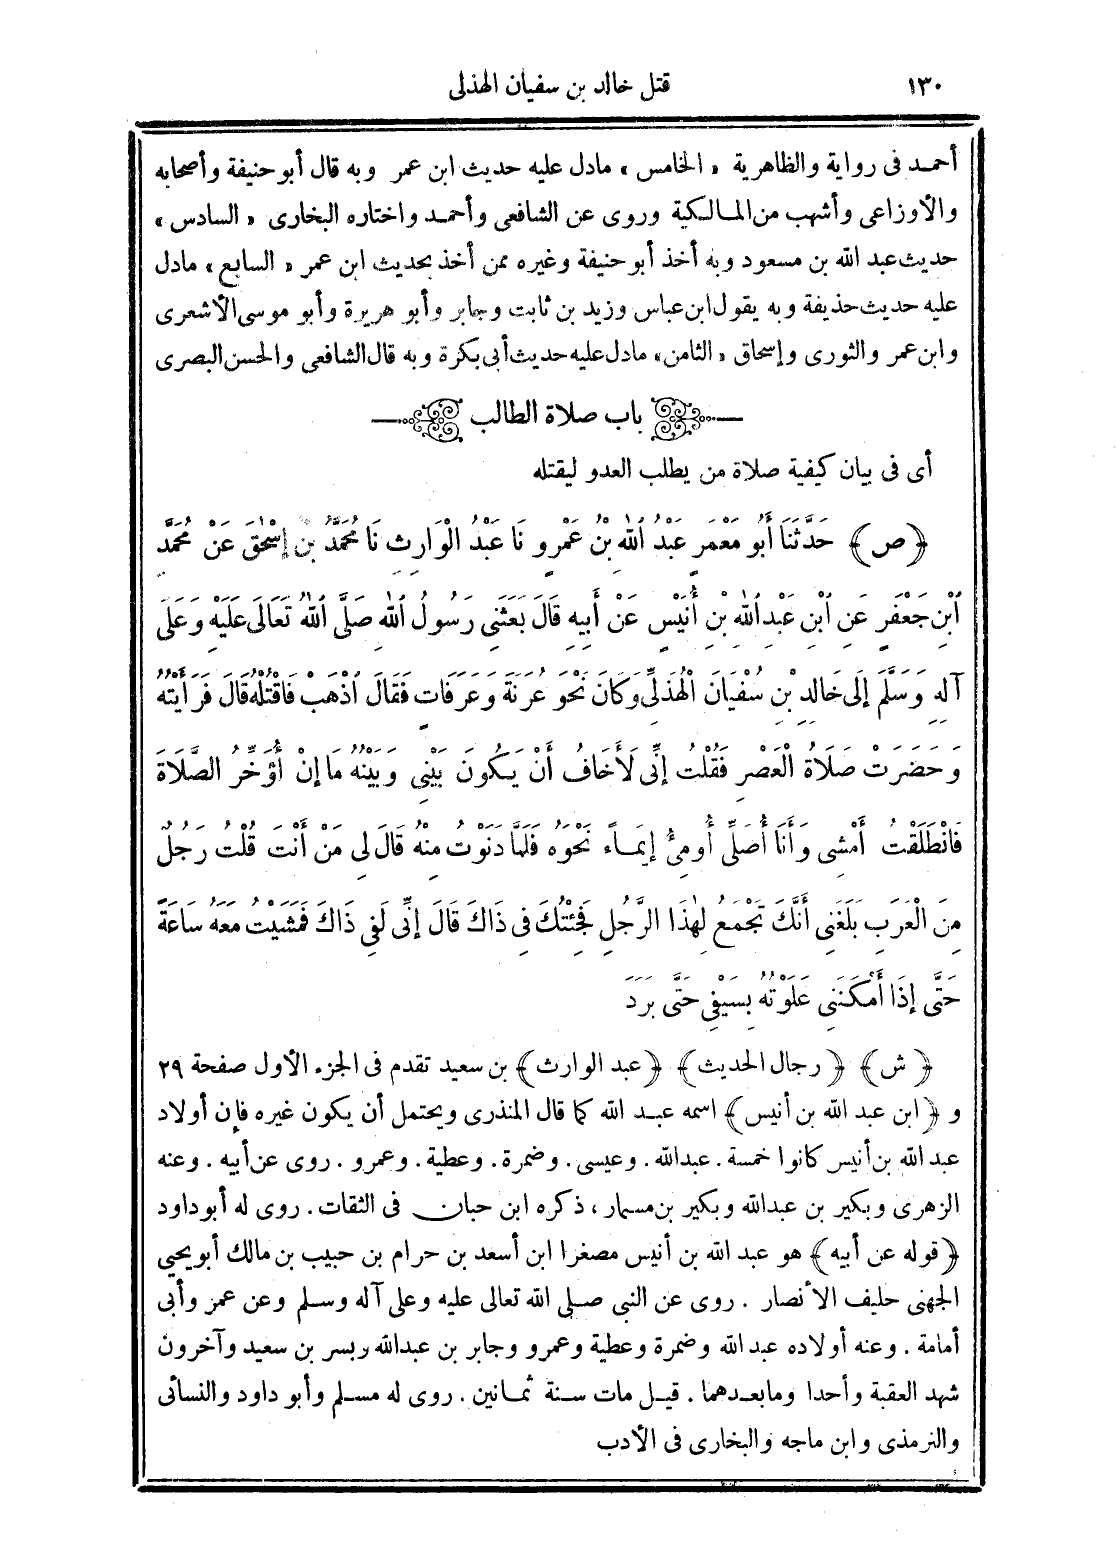 ١٣٠ قتل خالد بن سفيان الهذلى
أحمد فى رواية والظاهرية «الخامس» مادل عليه حديث ابن عمر وبه قال أبو حنيفة وأصحابه
والأوزاعى وأشهب من المالكية وروى عن الشافعى وأحمد واختاره البخارى «السادس»
حديث عبد الله بن مسعود وبه أخذ أبو حنيفة وغيره ممن أخذ بحديث ابن عمر «السابع» مادل
عليه حديث حذيفة وبه يقول ابن عباس وزيد بن ثابت وجابر وأبو هريرة وأبو موسى الأشعرى
وابن عمر والثورى وإسحاق «الثامن» مادل عليه حديث أبى بكرة وبه قال الشافعى والحسن البصرى
باب صلاة الطالب
أى فى بيان كيفية صلاة من يطلب العدو ليقتله
﴿ص﴾ حَدَّثَنَا أَبُو مَعْمَرٍ عَبْدُ اللهِ بْنُ عَمْرٍو نَا عَبْدُ الْوَارِثِ نَا مُحَمَّدُ بْنُ إِسْحٰقَ عَنْ مُحَمَّدِ
ابْنِ جَعْفَرٍ عَنِ ابْنِ عَبْدِ اللهِ بْنِ أُنَيْسٍ عَنْ أَبِيهِ قَالَ بَعَثَنِى رَسُولُ اللهِ صَلَّى اللهُ تَعَالَى عَلَيْهِ وَعَلَى
آلِهِ وَسَلَّمَ إِلَى خَالِدِ بْنِ سُفْيَانَ الْهُذَلِىِّ وَكَانَ نَحْوَ عُرَنَةَ وَعَرَفَاتٍ فَقَالَ اذْهَبْ فَاقْتُلْهُ قَالَ فَرَأَيْتُهُ
وَحَضَرَتْ صَلَاةُ الْعَصْرِ فَقُلْتُ إِنِّى لَأَخَافُ أَنْ يَكُونَ بَيْنِى وَبَيْنَهُ مَا إِنْ أُؤَخِّرُ الصَّلَاةَ
فَانْطَلَقْتُ أَمْشِى وَأَنَا أُصَلِّى أُومِئُ إِيمَاءً نَحْوَهُ فَلَمَّا دَنَوْتُ مِنْهُ قَالَ لِى مَنْ أَنْتَ قُلْتُ رَجُلٌ
مِنَ الْعَرَبِ بَلَغَنِى أَنَّكَ تَجْمَعُ لِهٰذَا الرَّجُلِ فَجِئْتُكَ فِى ذَاكَ قَالَ إِنِّى لَفِى ذَاكَ فَمَشَيْتُ مَعَهُ سَاعَةً
حَتَّى إِذَا أَمْكَنَنِى عَلَوْتُهُ بِسَيْفِى حَتَّى بَرَدَ
﴿ش﴾ ﴿رجال الحديث﴾ ﴿عبد الوارث﴾ بن سعيد تقدم فى الجزء الأول صفحة ٢٩
و﴿ابن عبد الله بن أنيس﴾ اسمه عبد الله كما قال المنذرى ويحتمل أن يكون غيره فإن أولاد
عبد الله بن أنيس كانوا خمسة. عبدالله. وعيسى. وضمرة. وعطية. وعمرو. روى عن أبيه. وعنه
الزهرى وبكير بن عبدالله وبكير بن مسمار، ذكره ابن حبان فى الثقات. روى له أبو داود
﴿قوله عن أبيه﴾ هو عبد الله بن أنيس مصغرا ابن أسعد بن حرام بن حبيب بن مالك أبو يحيى
الجهنى حليف الأنصار. روى عن النبى صلى الله تعالى عليه وعلى آله وسلم وعن عمر وأبى
أمامة. وعنه أولاده عبد الله وضمرة وعطية وعمرو وجابر بن عبدالله وبسر بن سعيد وآخرون
شهد العقبة وأحدا ومابعدهما. قيل مات سنة ثمانين. روى له مسلم وأبو داود والنسائى
والترمذى وابن ماجه والبخارى فى الأدب